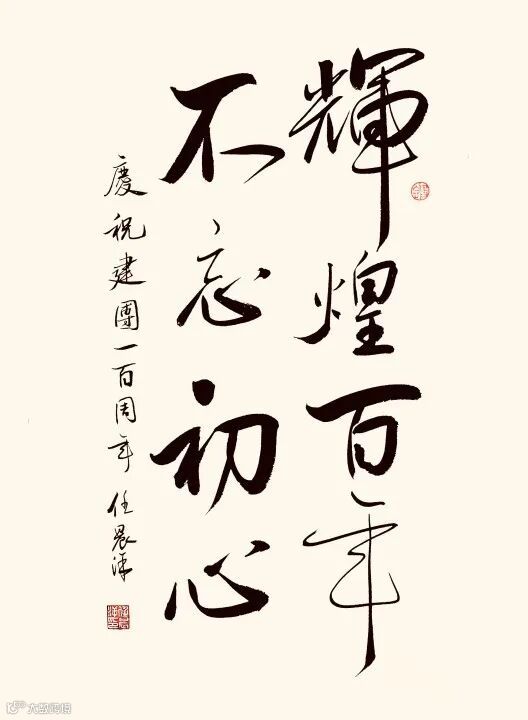 輝煌百年
不忘初心
慶祝建團一百周年 任晨